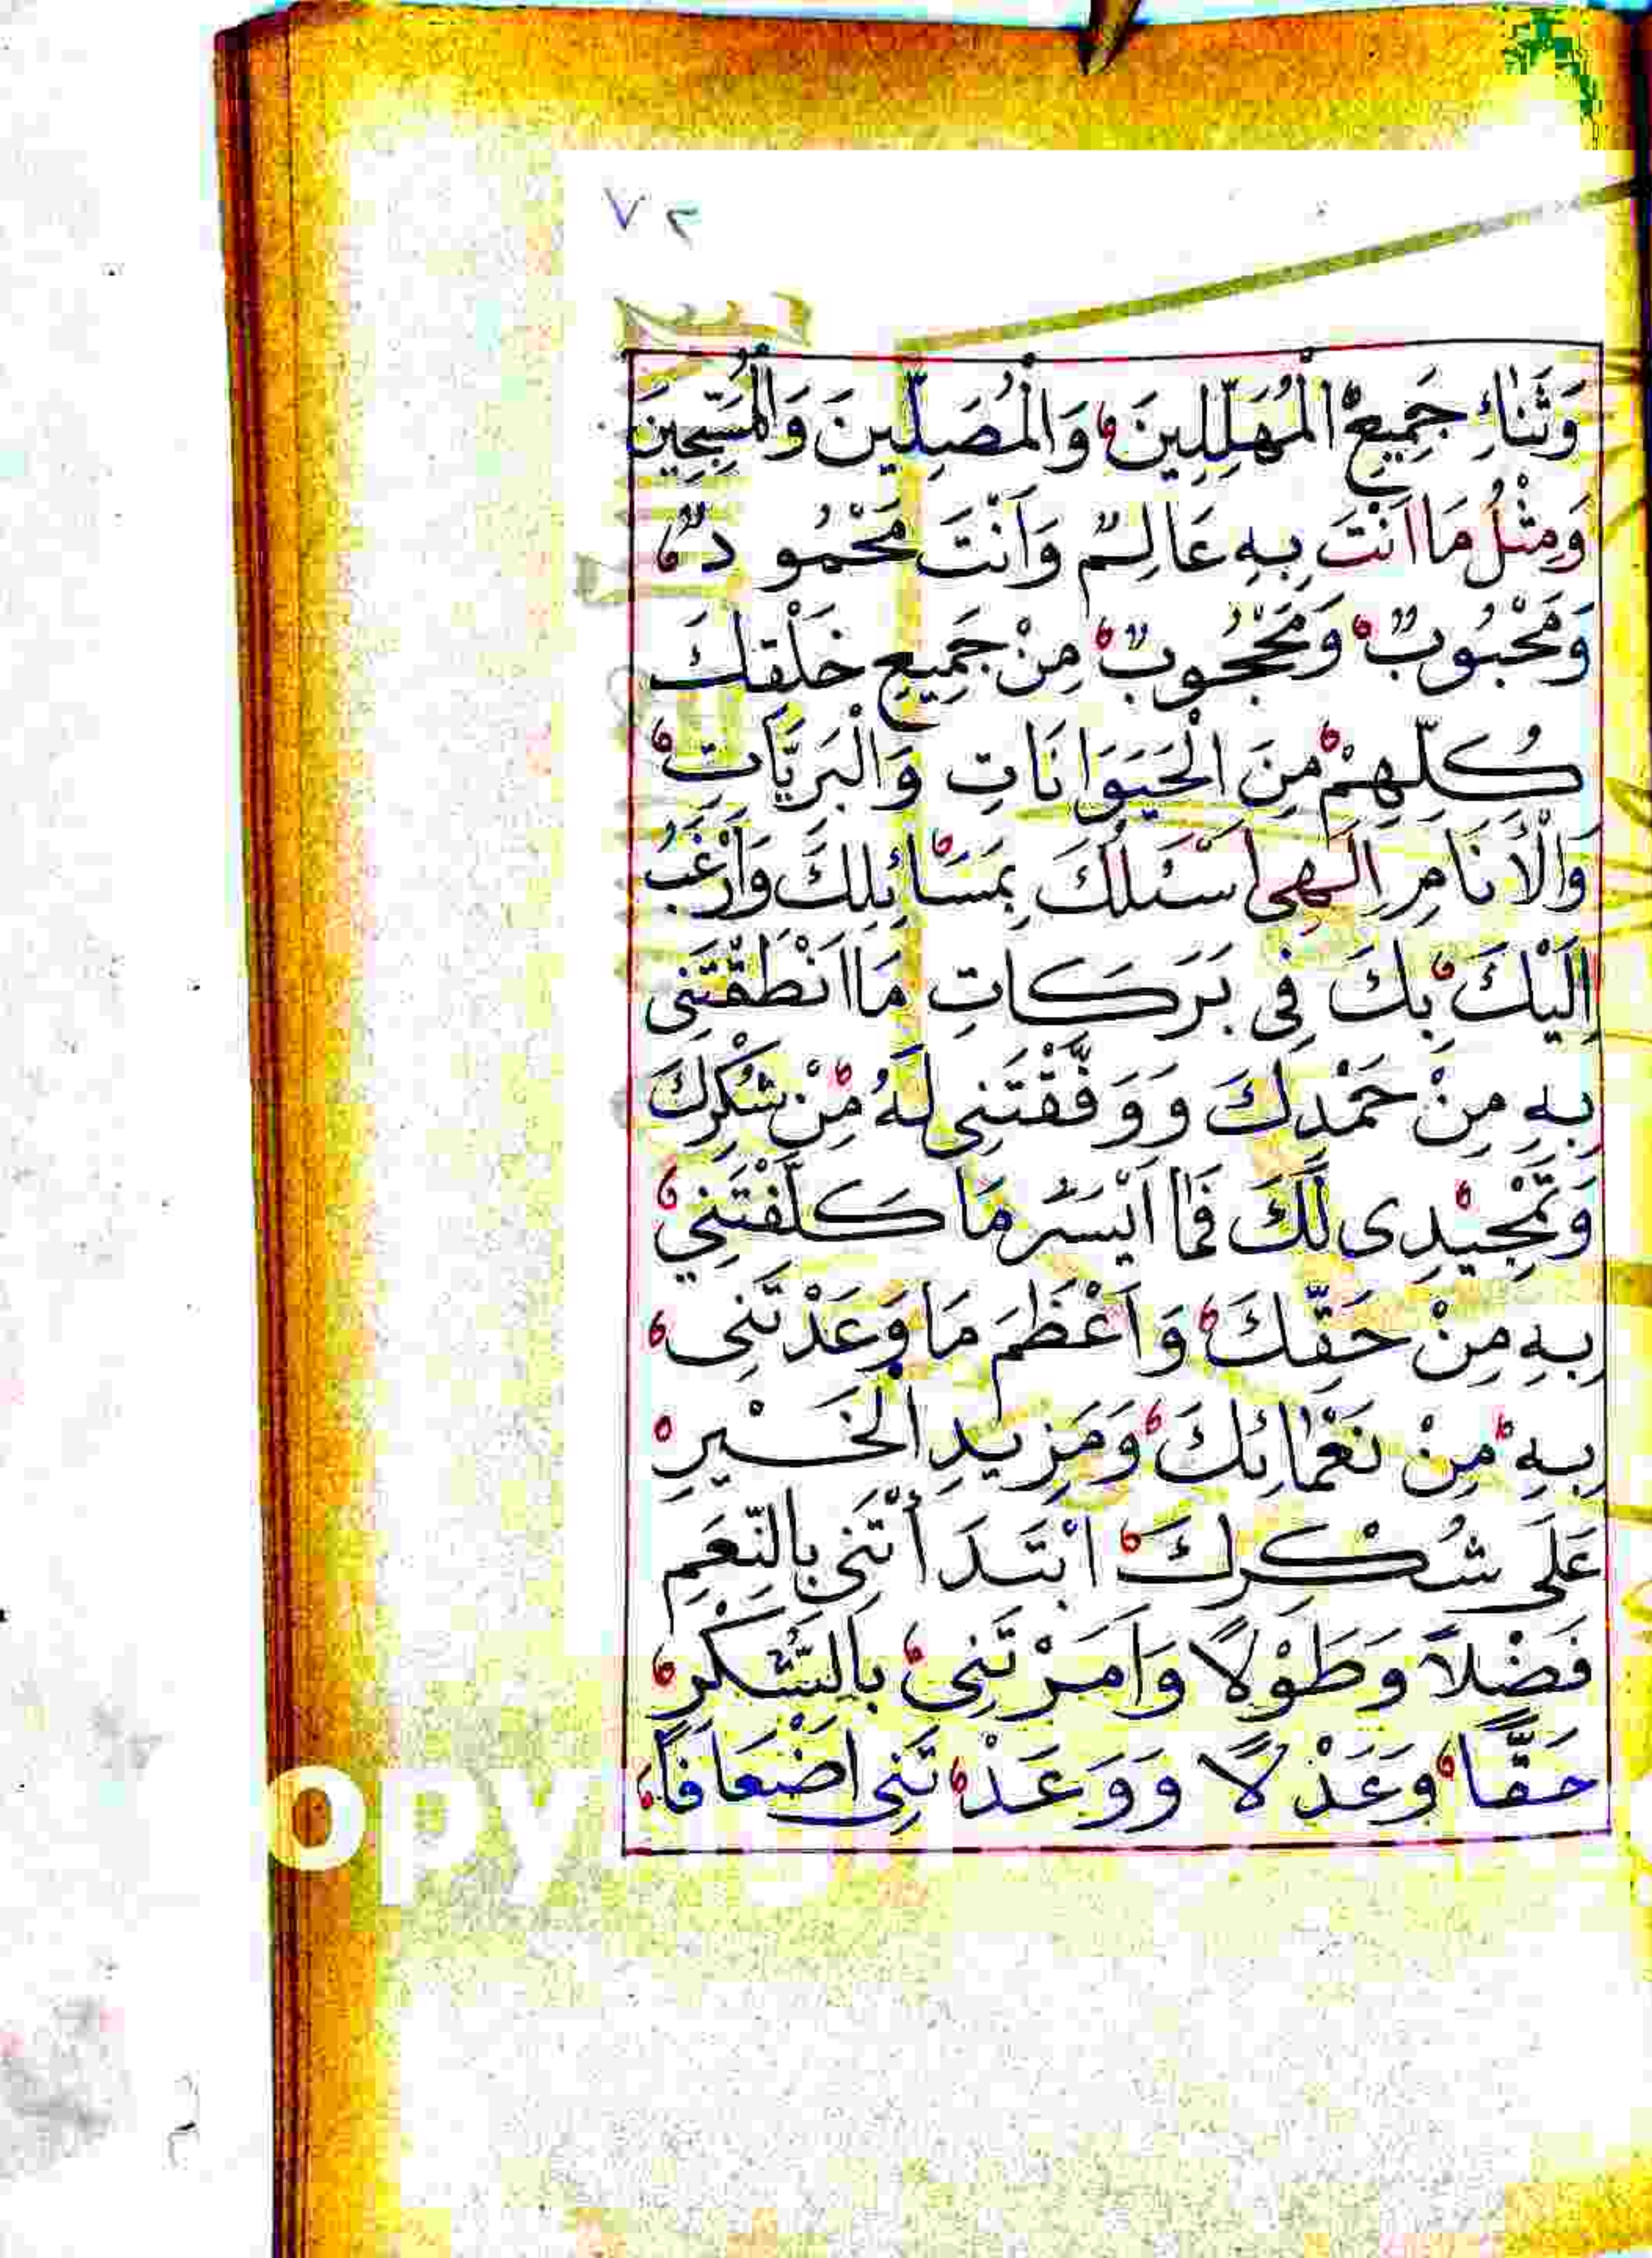 ٧٢
وَثَنَاءِ جَمِيعِ الْمُهَلِّلِينَ وَالْمُصَلِّينَ وَالْمُسَبِّحِينَ
وَمِثْلُ مَا اَنْتَ بِهِ عَالِمٌ وَاَنْتَ مَحْمُودٌ
وَمَحْبُوبٌ وَمَحْجُوبٌ مِنْ جَمِيعِ خَلْقِكَ
كُلِّهِمْ مِنَ الْحَيَوَانَاتِ وَالْبَرِيَّاتِ
وَالْاَنَامِ اِلَهِى اَسْئَلُكَ بِمَسَائِلِكَ وَاَرْغَبُ
اِلَيْكَ بِكَ فِى بَرَكَاتِ مَا اَنْطَقْتَنِى
بِهِ مِنْ حَمْدِكَ وَوَفَّقْتَنِى لَهُ مِنْ شُكْرِكَ
وَتَمْجِيْدِى لَكَ فَمَا اَيْسَرَ مَا كَلَّفْتَنِي
بِهِ مِنْ حَقِّكَ وَاَعْظَمَ مَا وَعَدْتَنِى
بِهِ مِنْ نَعْمَائِكَ وَمَزِيدِ الْخَيْرِ
عَلَى شُكْرِكَ ابْتَدَأْتَنِى بِالنِّعَمِ
فَضْلًا وَطَوْلًا وَاَمَرْتَنِى بِالشُّكْرِ
حَقًّا وَعَدْلًا وَوَعَدْتَنِى اَضْعَافًا
OPY